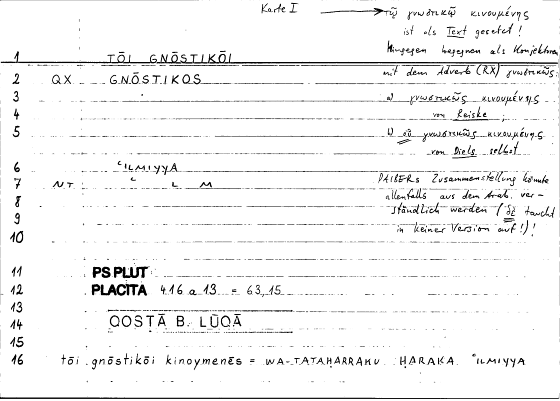 Karte I → τῷ γνωστικῷ κινουμένης
ist als Text gesetzt!
Hingegen begegnen als Konjekturen
1 TŌI GNŌSTIKŌI
mit dem Adverb (RX) γνωστικῶς
2 QX GNŌSTIKOS
3 ω γνωστικῶς κινουμένης
4 von Reiske;
5 ω οὐ γνωστικῶς κινουμένης
von Diels selbst
6 ʿILMIYYA
7 NT ʿ L M
DAIBERs Zusammenstellung könnte
8 allenfalls aus dem Arab. ver-
9 ständlich werden (δὲ taucht
10 in keiner Version auf!)!
11 PS PLUT
12 PLACITA 4.16 a 13 = 63,15
13
14 QOSṬĀ B. LŪQĀ
15
16 tōi gnōstikōi kinoymenēs = WA-TATAḤARRAKU ḤARAKA ʿILMIYYA